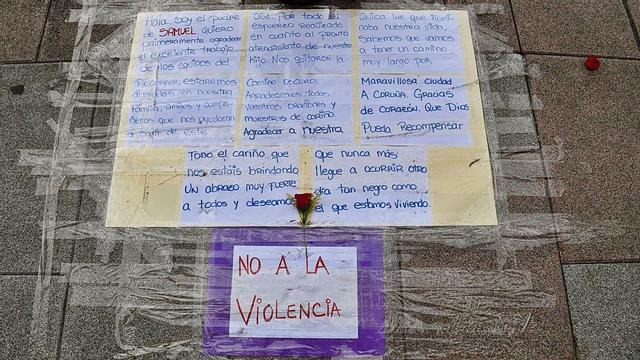 Hola, Soy el padre
de SAMUEL. QUIERO
primeramente agradecer
el excelente trabajo
de los equipos del
061. Por todo el
esfuerzo realizado
en cuanto al pronto
atendimiento de nuestro
hijo. Nos quitaron la
Única luz que ilumi-
naba nuestra vida,
Sabemos que vamos
a tener un camino
muy largo por
Recorrer, estaremos
en nuestra
familia, amigos y compa-
ñeros que nos ayudaran
a salir de este
Camino oscuro.
Agradecemos todas
vuestras oraciones y
muestras de cariño
Agradecer a nuestra
Maravillosa ciudad
A CORUÑA. GRACIAS
DE CORAZÓN. QUE DIOS
Pueda Recompensar
TODO el cariño que
nos estáis brindando
UN ABRAZO MUY FUERTE
a todos y deseamos
que nunca más
llegue a OCURRIR OTRO
día tan negro como
el que estamos viviendo.
NO A LA
VIOLENCIA